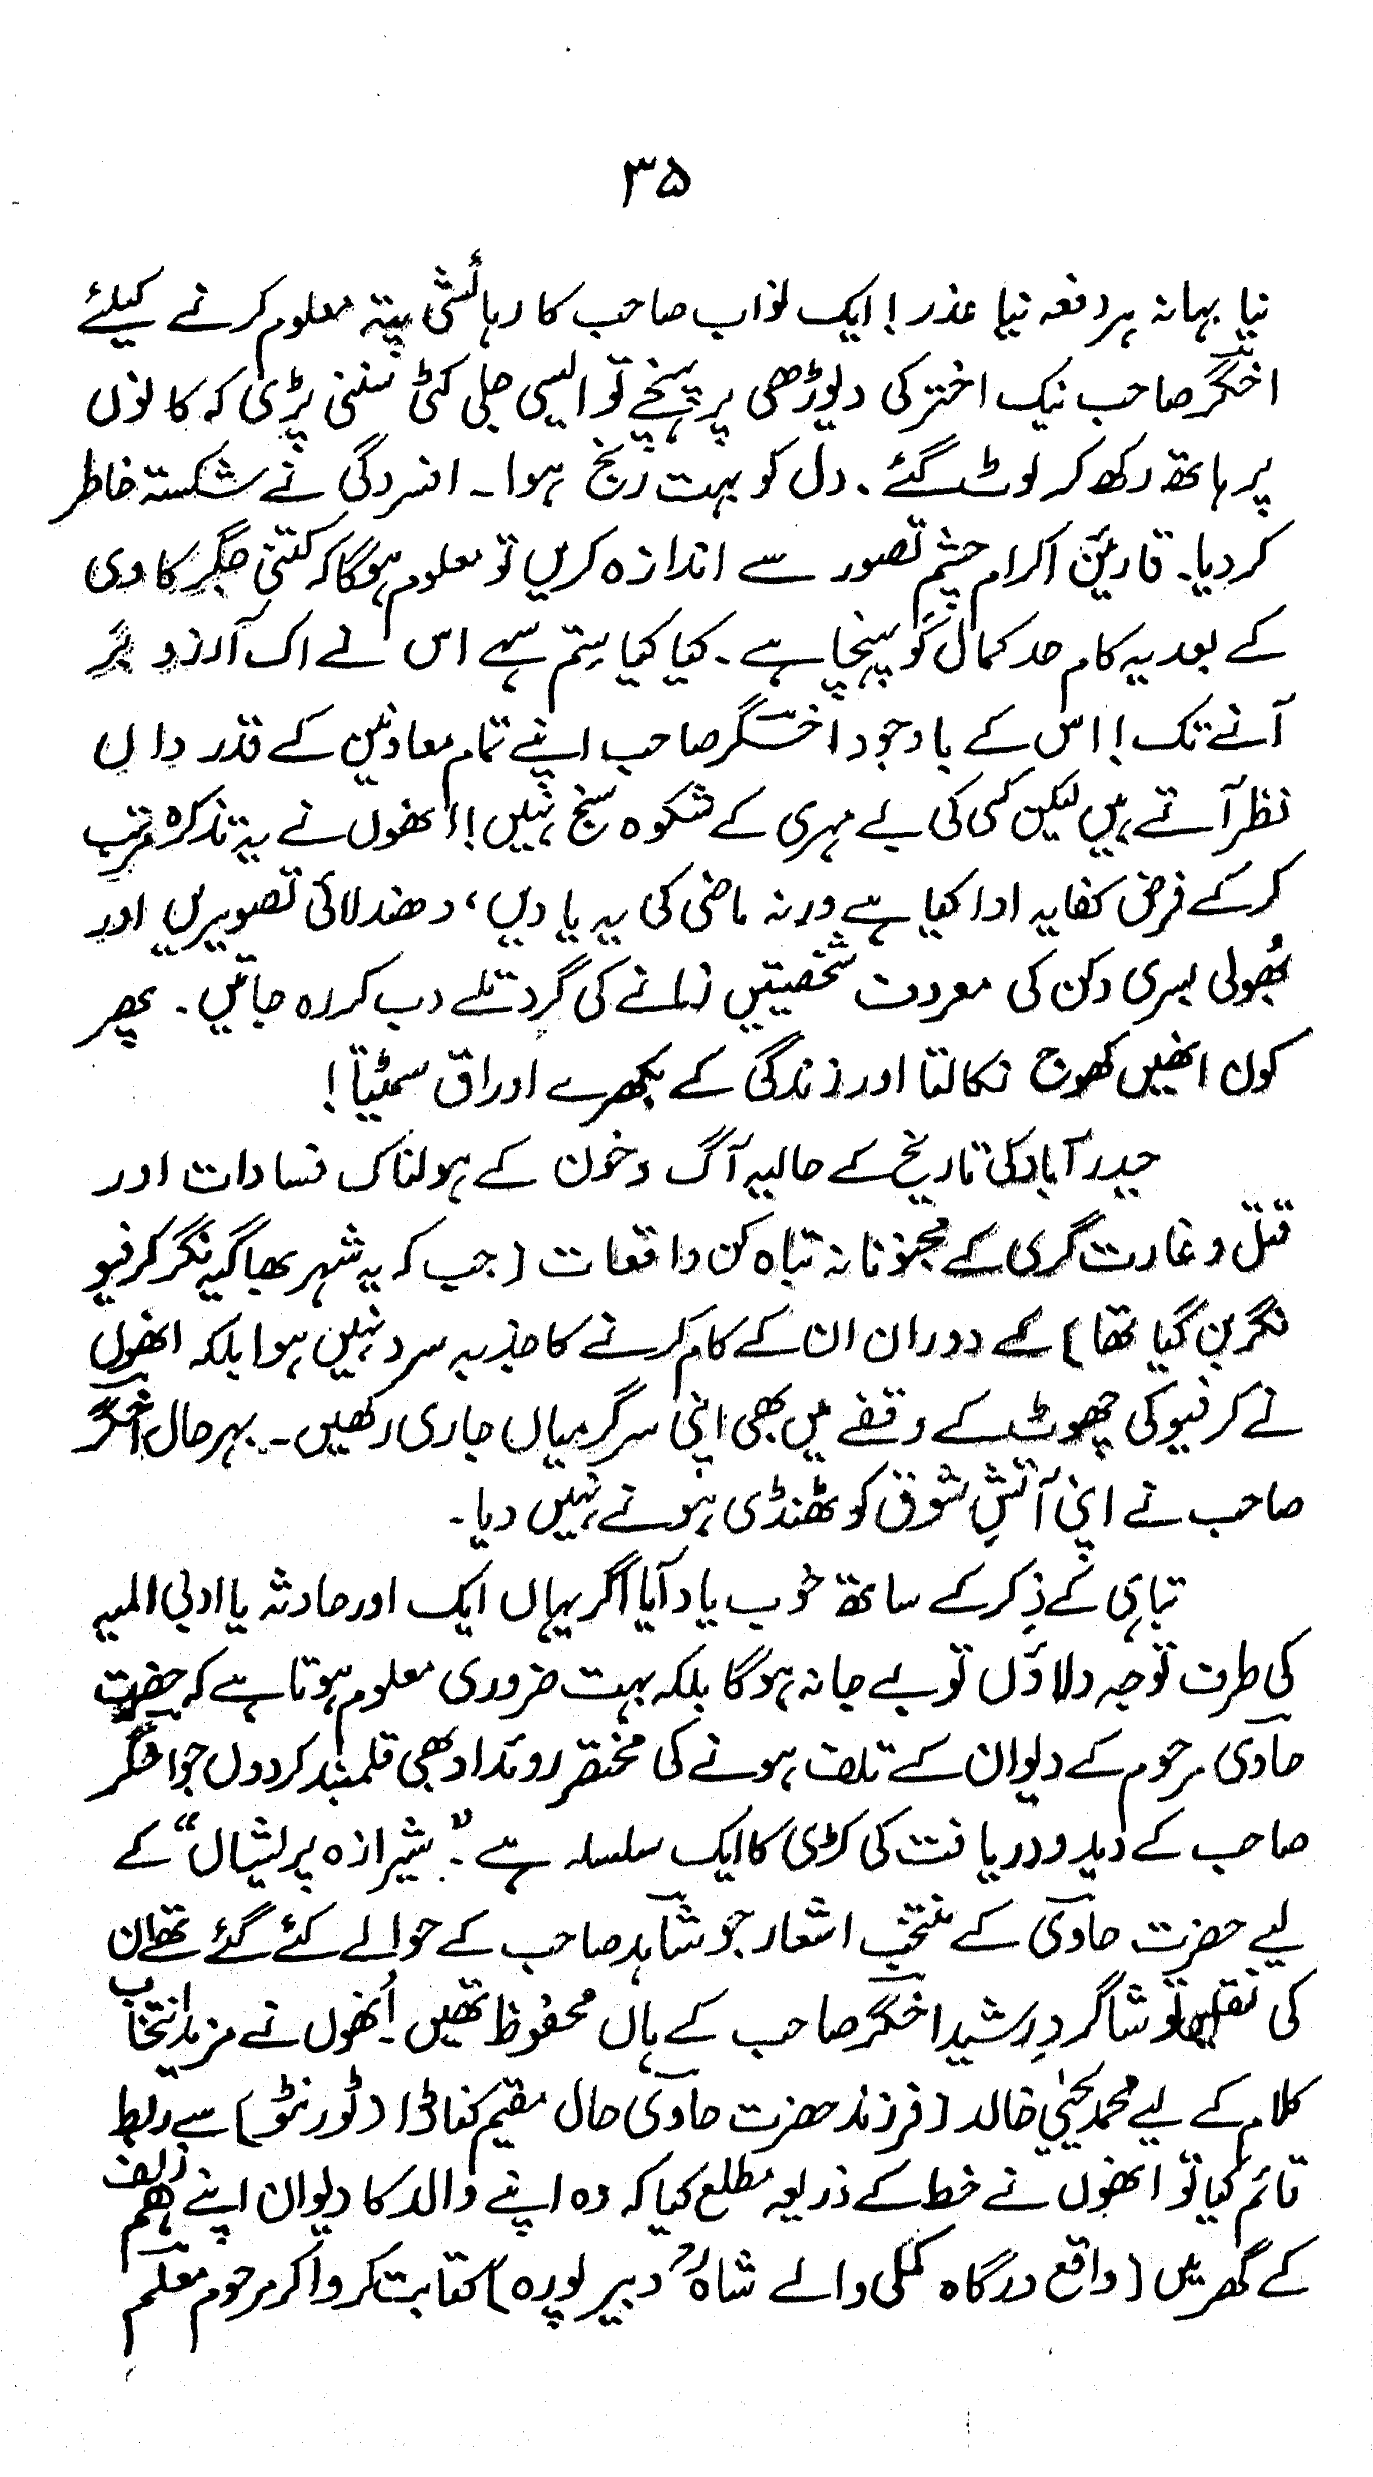 ۳۵
نیا بہانہ ہر دفعہ نیا عذر! ایک نواب صاحب کا رہائشی پتہ معلوم کرنے کیلئے
اخگر صاحب نیک اختر کی دیوڑھی پر پہنچے تو ایسی جلی کٹی سننی پڑی کہ کانوں
پر ہاتھ رکھ کر لوٹ گئے۔ دل کو بہت رنج ہوا۔ افسردگی نے شکستہ خاطر
کر دیا۔ قارئین اکرام چشم تصور سے اندازہ کریں تو معلوم ہوگا کہ کتنی جگر کاوی
کے بعد یہ کام حد کمال کو پہنچا ہے۔ کیا کیا ستم سہے اس نے اک آرزو بر
آنے تک! اس کے باوجود اخگر صاحب اپنے تمام معاونین کے قدر داں
نظر آتے ہیں لیکن کسی کی بے مہری کے شکوہ سنج نہیں! انھوں نے یہ تذکرہ مرتب
کر کے فرض کفایہ ادا کیا ہے ورنہ ماضی کی یہ یادیں، دھندلائی تصویریں اور
بھُولی بسری دکن کی معروف شخصیتیں زمانے کی گرد تلے دب کر رہ جاتیں۔ پھر
کون انھیں کھوج نکالتا اور زندگی کے بکھرے اوراق سمٹیتا!
حیدرآباد کی تاریخ کے حالیہ آگ و خون کے ہولناک فسادات اور
قتل و غارت گری کے مجنونانہ تباہ کن واقعات (جب کہ یہ شہر بھاگیہ نگر کرفیو
نگر بن گیا تھا) کے دوران ان کے کام کرنے کا جذبہ سرد نہیں ہوا بلکہ انھوں
نے کرفیو کی چھوٹ کے وقفے میں بھی اپنی سرگرمیاں جاری رکھیں۔ بہرحال اخگر
صاحب نے اپنی آتشِ شوق کو ٹھنڈی ہونے نہیں دیا۔
تباہی کے ذِکر کے ساتھ خوب یاد آیا اگر یہاں ایک اور حادثہ یا ادبی المیہ
کی طرف توجہ دلاؤں تو بے جا نہ ہوگا بلکہ بہت ضروری معلوم ہوتا ہے کہ حضرت
حاوی مرحوم کے دیوان کے تلف ہونے کی مختصر روئداد بھی قلمبند کر دوں جو اخگر
صاحب کے دید و دریافت کی کڑی کا ایک سلسلہ ہے۔ "شیرازہ پریشاں" کے
لیے حضرت حاوی کے منتخب اشعار جو شاہد صاحب کے حوالے کئے گئے تھے ان
کی نقلیں تو شاگردِ رشید اخگر صاحب کے ہاں محفوظ تھیں۔ اُنھوں نے مزید انتخاب
کلام کے لیے محمد یحییٰ خالد (فرزند حضرت حاوی حال مقیم کناڈا (ٹورنٹو) سے ربط
قائم کیا تو انھوں نے خط کے ذریعہ مطلع کیا کہ وہ اپنے والد کا دیوان اپنے ہم زلف
کے گھر میں (واقع درگاہ کملی والے شاہؒ دبیر پورہ) کتابت کروا کر مرحوم معلم